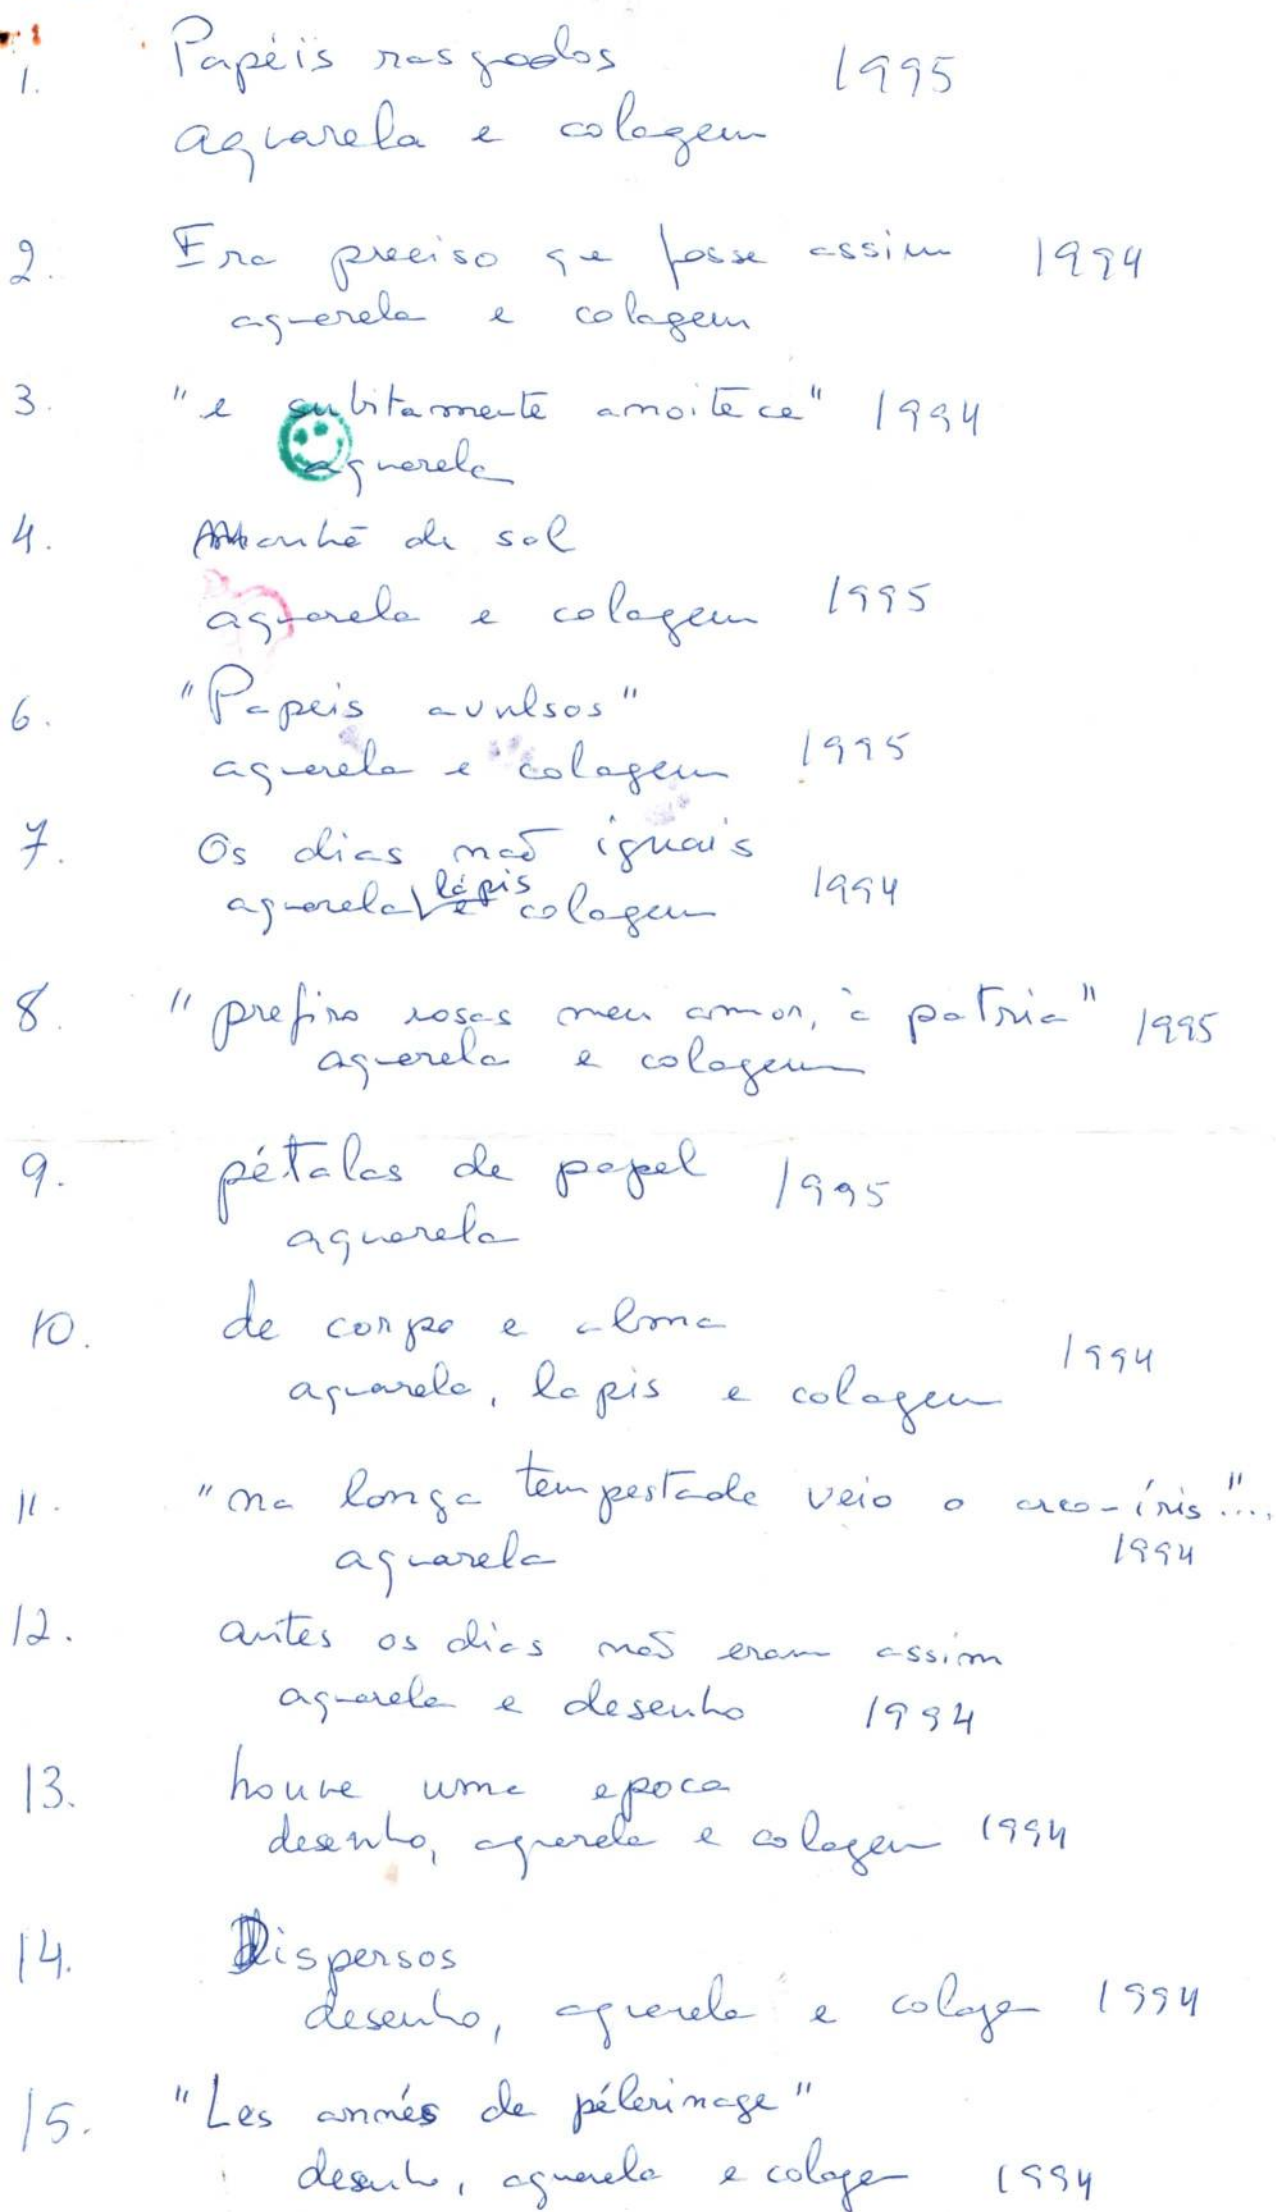 1. Papéis rasgados 1995
aquarela e colagem
2. Era preciso que fosse assim 1994
aquarela e colagem
3. "e subitamente anoitece" 1994
aquarela
4. Manhã de sol
aquarela e colagem 1995
6. "Papeis avulsos"
aquarela e colagem 1995
7. Os dias não iguais
aquarela lápis e colagem 1994
8. "prefiro rosas meu amor, à patria" 1995
aquarela e colagem
9. pétalas de papel 1995
aquarela
10. de corpo e alma
aquarela, lapis e colagem 1994
11. "na longa tempestade veio o arco-íris"...
aquarela 1994
12. antes os dias não eram assim
aquarela e desenho 1994
13. houve uma epoca
desenho, aquarela e colagem 1994
14. Dispersos
desenho, aquarela e colagem 1994
15. "Les annés de pélerinage"
desenho, aquarela e colagem 1994